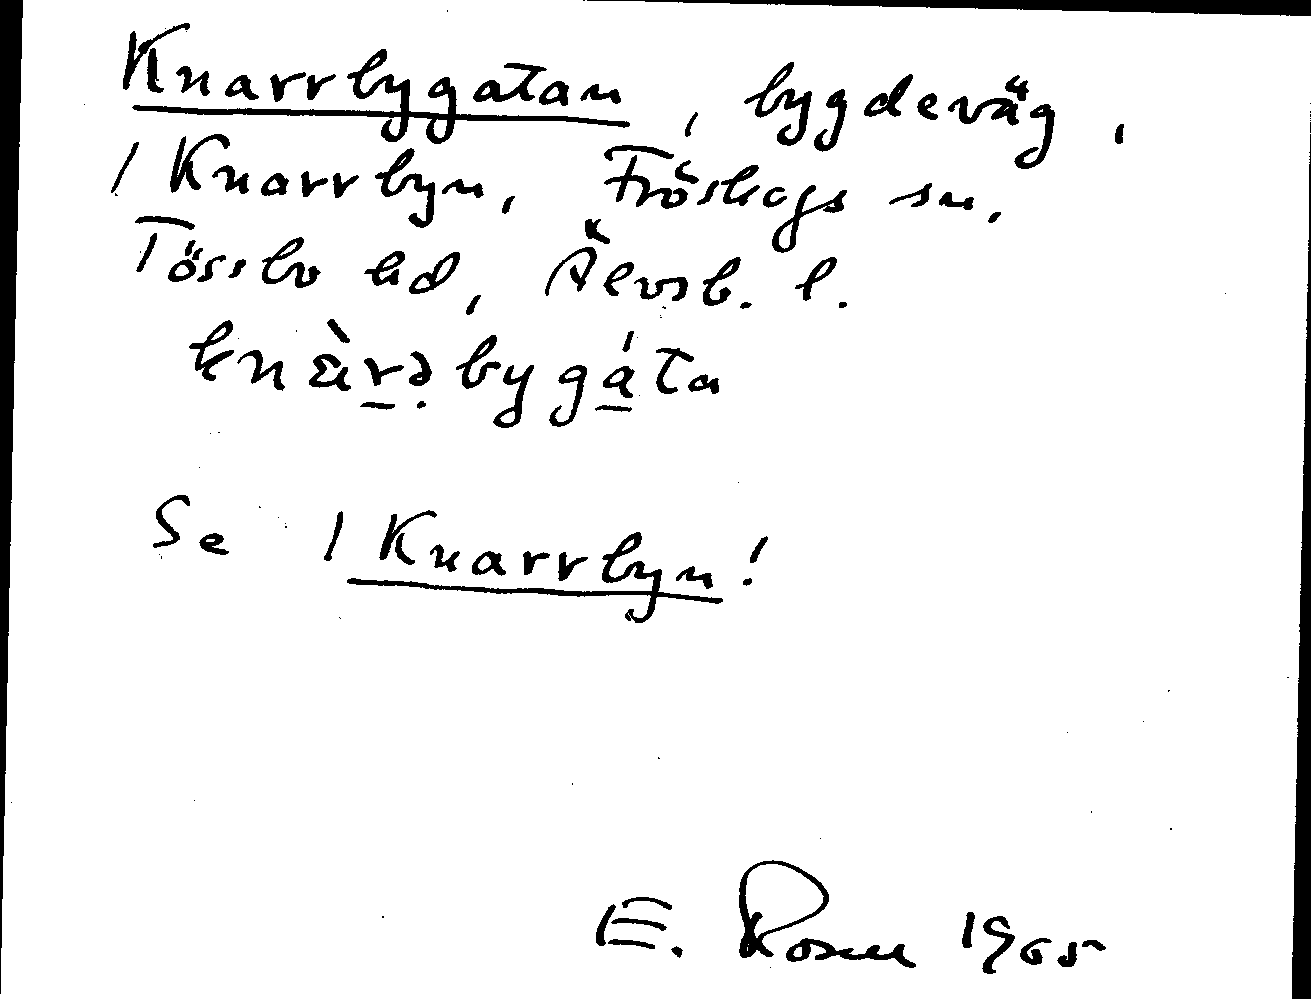 Knarrbygatan, bygdeväg,
1 Knarrbyn, Fröskogs sn,
Tössbo hd, Älvsb. l.
knàrəbygáta
Se 1 Knarrbyn!
E. Rosell 1965